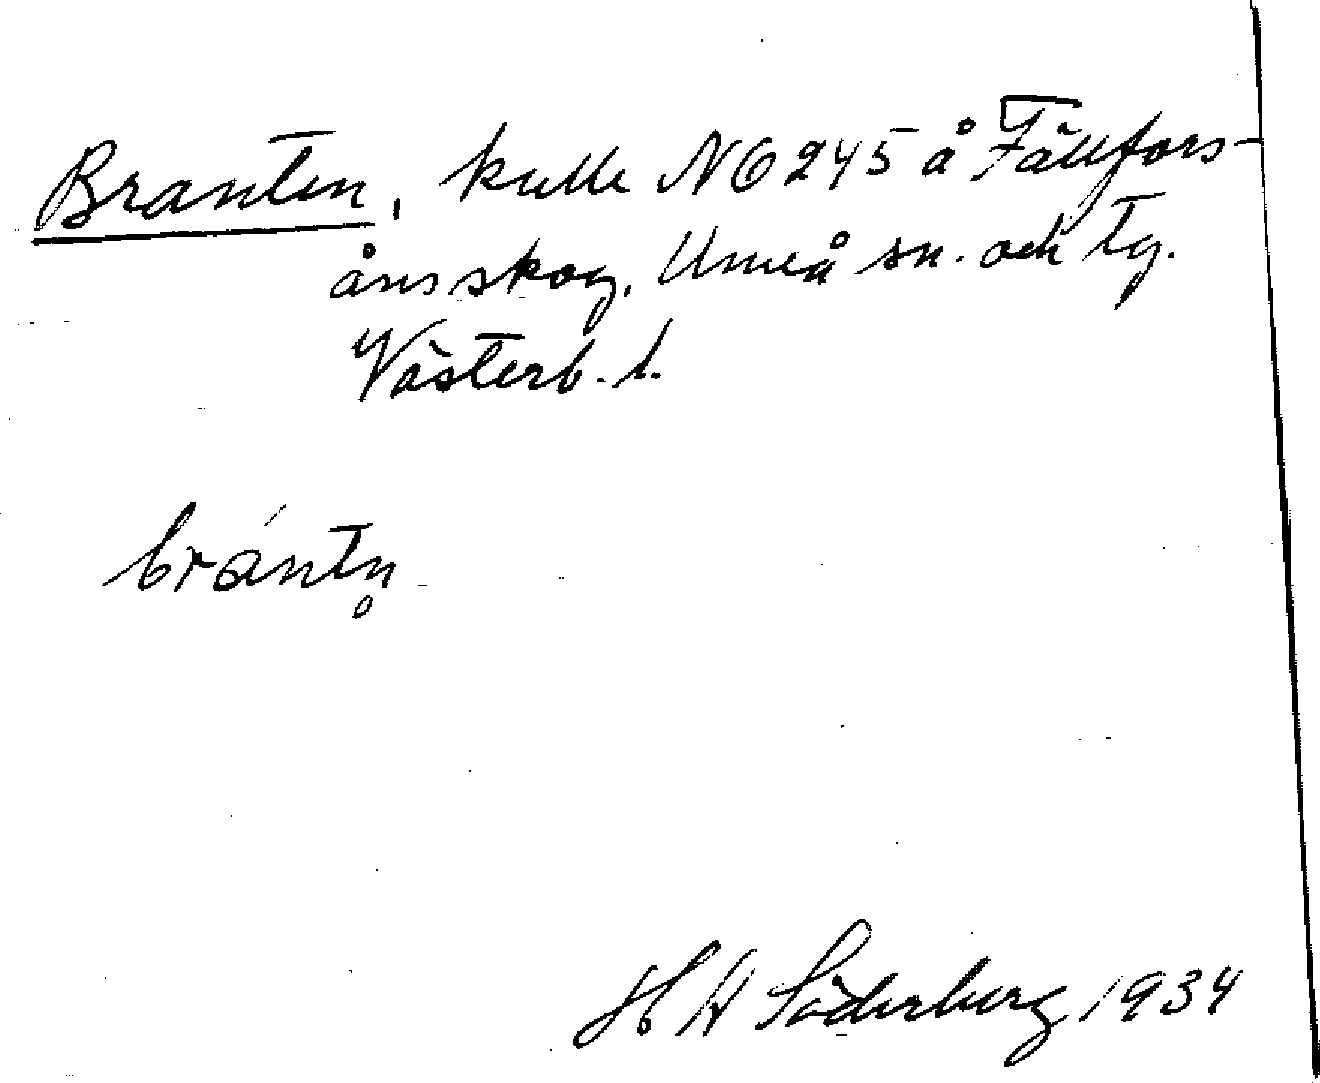 Branten, kulle N6245 å Fällfors-
åns skog, Umeå sn. och tg.
Västerb. l.
brántn̥
H H Söderberg 1934